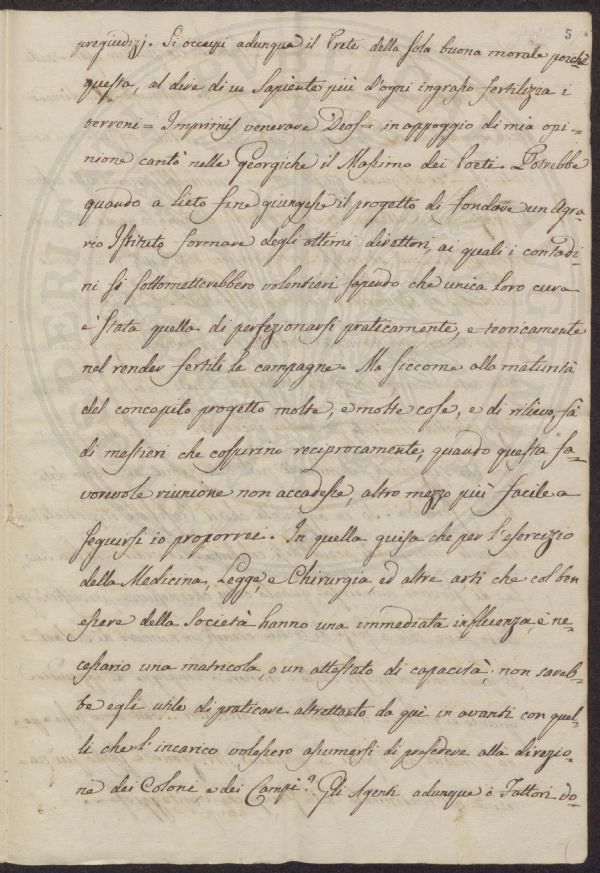 5
pregiudizj. Si occupi adunque il Prete della sola buona morale, poichè
questa, al dire di un Sapiente più d'ogni ingrasso fertilizza i
terreni = Imprimis venerare Deos = in appoggio di mia opi=
nione cantò nelle Georgiche il Massimo dei Poeti. Potrebbe
quando a lieto fine giungesse il progetto di fondare un Agra=
rio Istituto formare degli ottimi direttori, ai quali i contadi=
ni si sottometterebbero volentieri sapendo che unica loro cura
è stata quella di perfezionarsi praticamente, e teoricamente
nel render fertili le campagne. Ma siccome alla maturità
del concepito progetto molte, e molte cose, e di rilievo, fà
di mestieri che cospirino reciprocamente, quando questa fa=
vorevole riunione non accadesse, altro mezzo più facile a
seguirsi io proporrei. In quella guisa che per l'esercizio
della Medicina, Legge, e Chirurgia, ed altre arti che col ben
essere della Società hanno una immediata influenza, è ne=
cessario una matricola, o un attestato di capacità; non sareb=
be egli utile di praticare altrettanto da qui in avanti con quel=
li che l'incarico volessero assumersi di presedere alla direzio=
ne dei Coloni, e dei Campi? Gli Agenti adunque ò Fattori do=